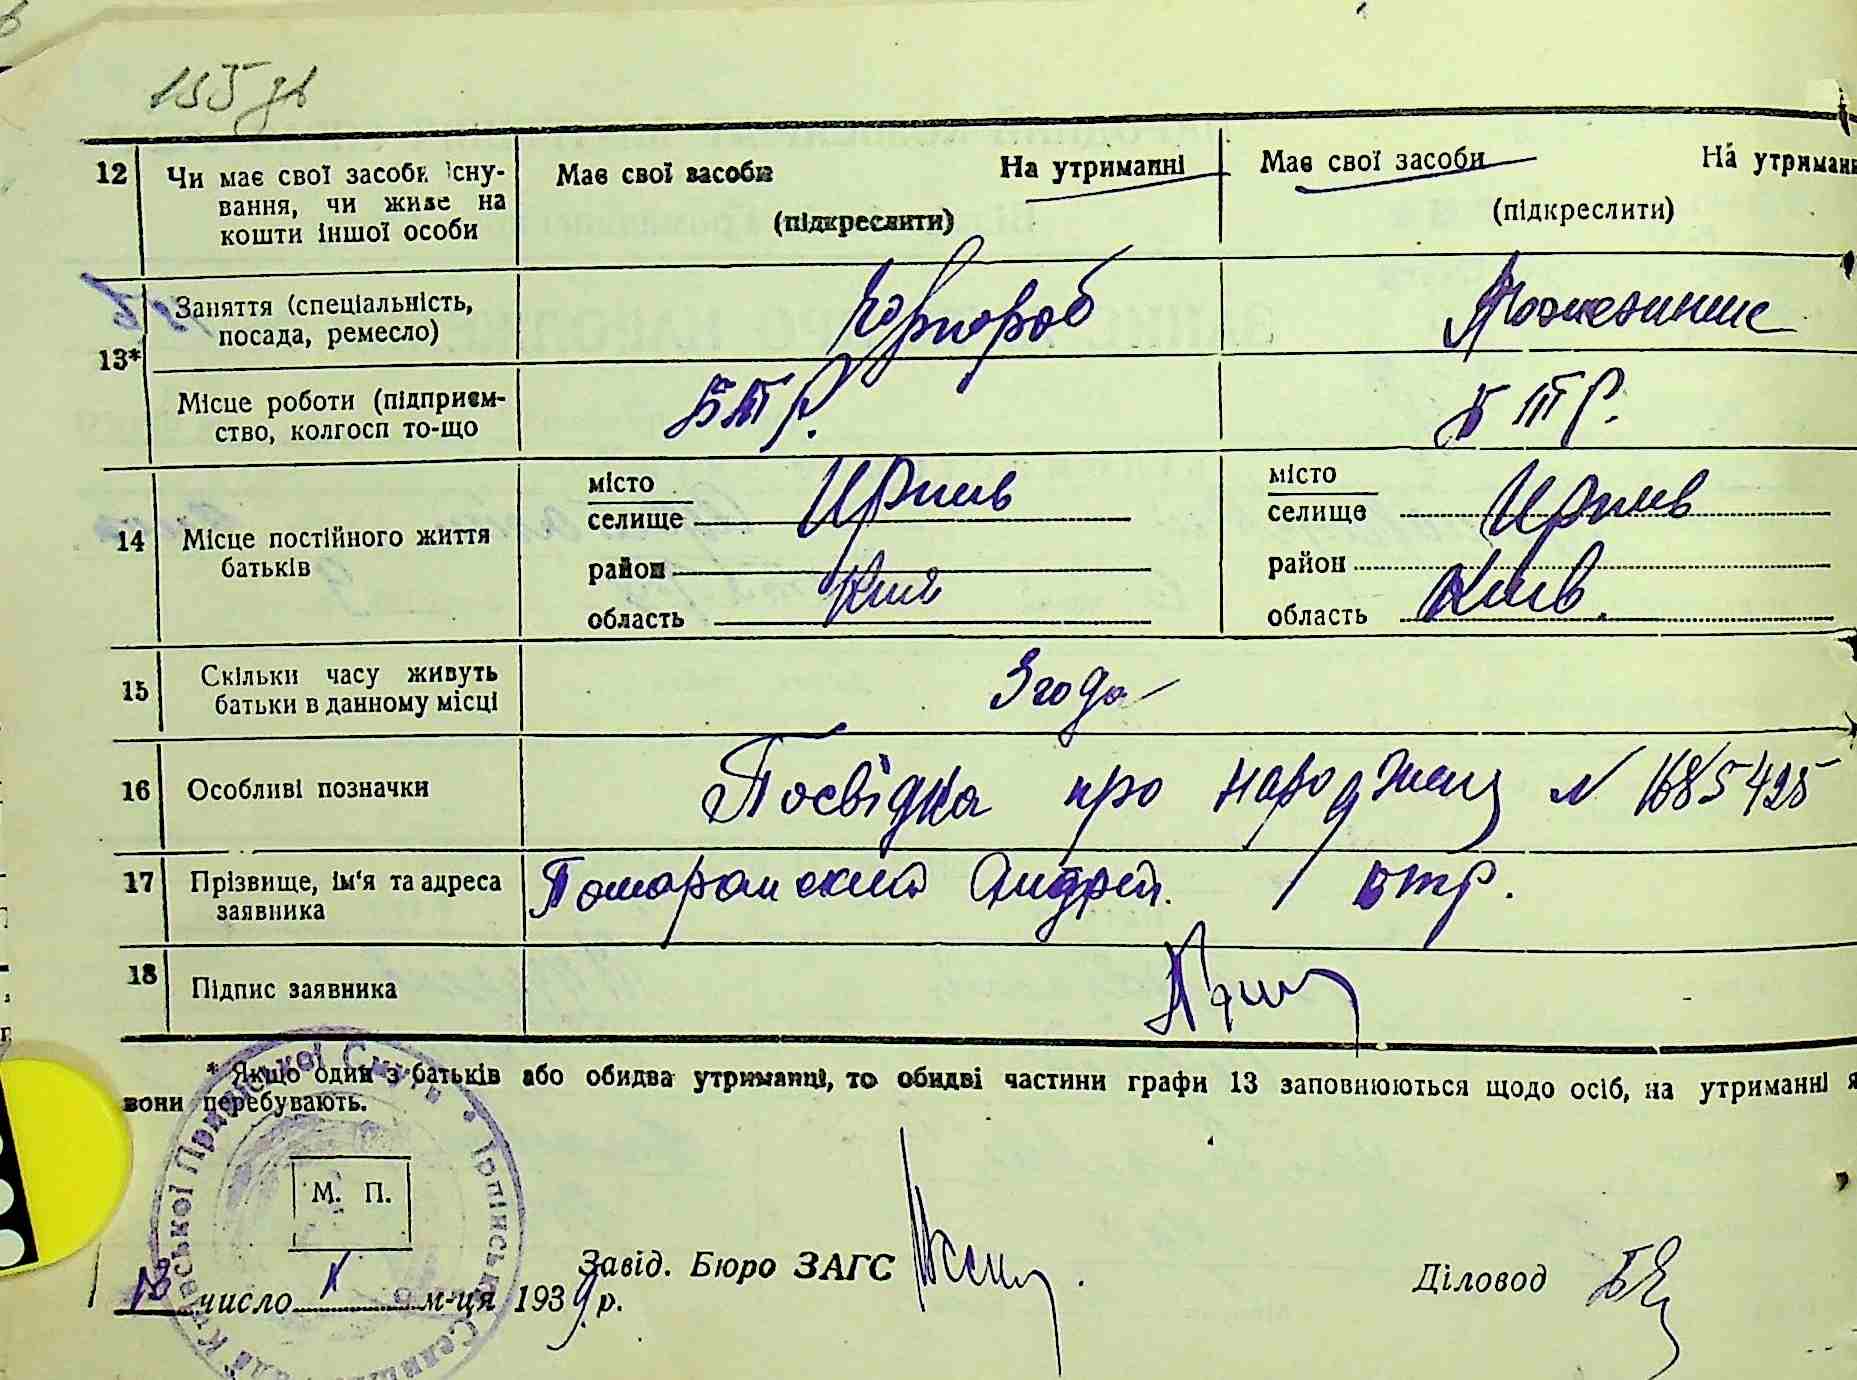 155
12 Чи має свої засоби існу-
вання, чи живе на
кошти іншої особи
Має свої засоби На утриманні
(підкреслити)
Має свої засоби На утриманн
(підкреслити)
13*
Заняття (спеціальність,
посада, ремесло)
Чорнороб
Місце роботи (підприєм-
ство, колгосп то-що
БТР.
БТР.
14 Місце постійного життя
батьків
місто
селище Ирпив
район
область Киів
місто
селище Ирпив
район
область Киів.
15 Скільки часу живуть
батьки в данному місці
3 года
16 Особливі позначки
Посвідка про народження N 1685425
17 Прізвище, ім'я та адреса
заявника
Андрей. / БТР.
18 Підпис заявника
* Якщо один з батьків або обидва утриманці, то обидві частини графи 13 заповнюються щодо осіб, на утриманні я
вони перебувають.
М. П.
Завід. Бюро ЗАГС
Діловод
число X м-ця 1939 р.